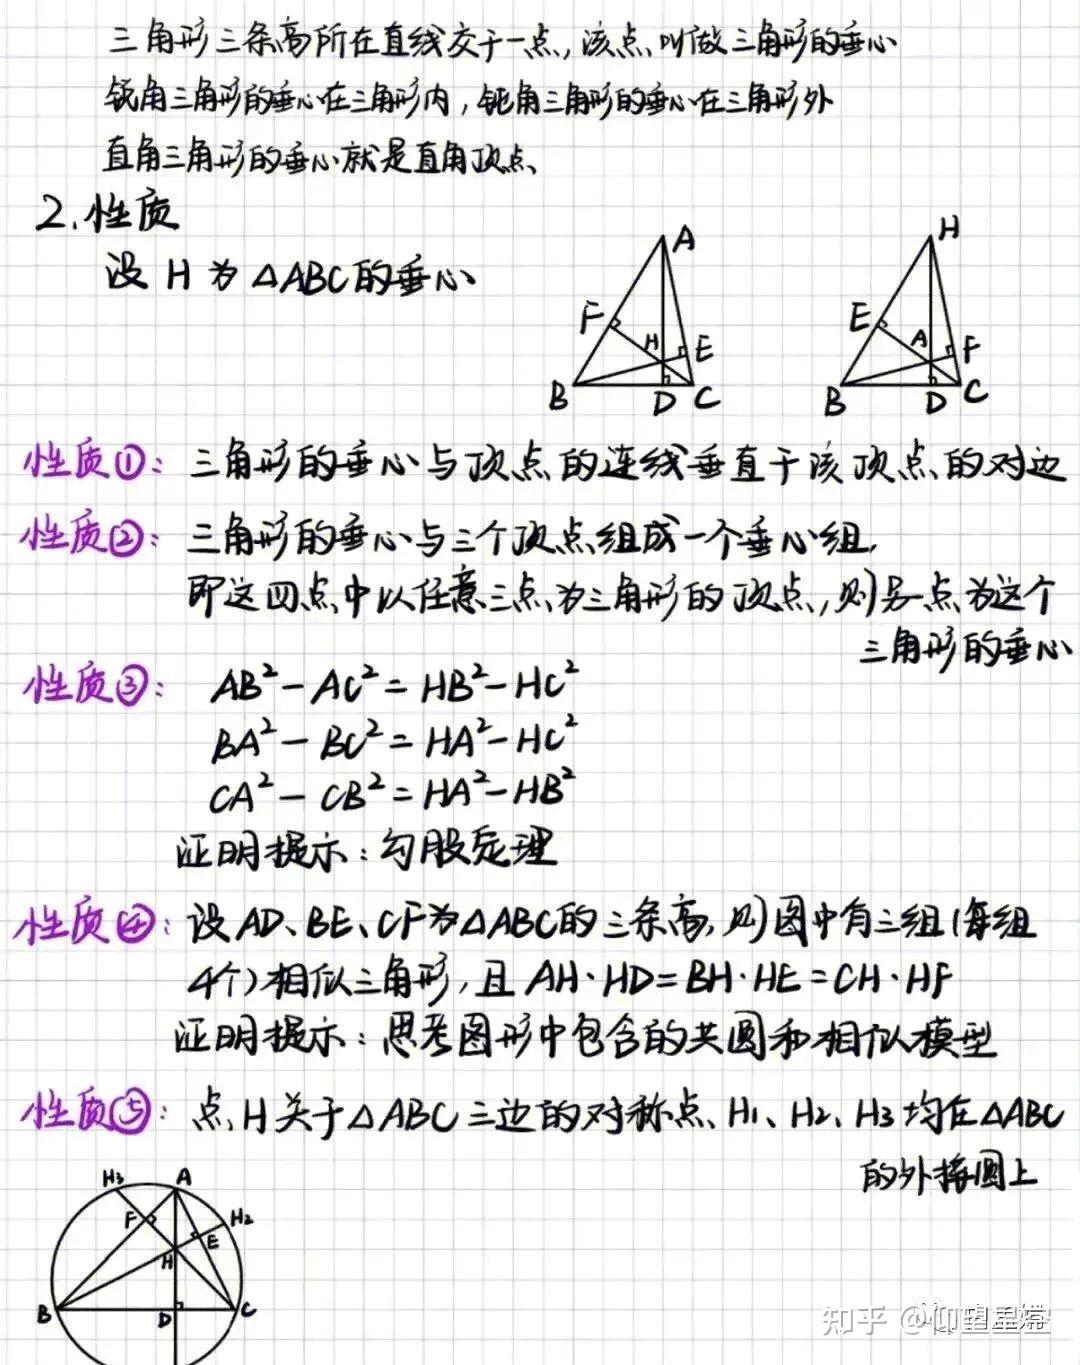 三角形三条高所在直线交于一点,该点叫做三角形的垂心
锐角三角形的垂心在三角形内,钝角三角形的垂心在三角形外
直角三角形的垂心就是直角顶点
2.性质
设 H 为 △ABC的垂心
A
F
H
E
B
D
C
H
E
A
F
B
D
C
性质①: 三角形的垂心与顶点的连线垂直于该顶点的对边
性质②: 三角形的垂心与三个顶点组成一个垂心组,
即这四点中以任意三点为三角形的顶点,则另一点为这个
三角形的垂心
性质③: AB²-AC²=HB²-HC²
BA²-BC²=HA²-HC²
CA²-CB²=HA²-HB²
证明提示:勾股定理
性质④: 设AD、BE、CF为△ABC的三条高,则图中有三组(每组
4个)相似三角形,且 AH·HD=BH·HE=CH·HF
证明提示:思考图形中包含的共圆和相似模型
性质⑤: 点H关于△ABC三边的对称点、H₁、H₂、H₃均在△ABC
的外接圆上
H₃
A
F
H₂
E
H
B
D
C
知乎 @仰望星空